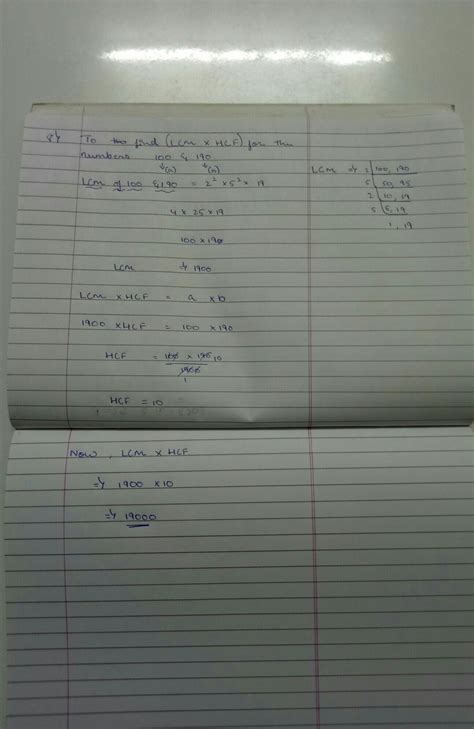 To find (LCM x HCF) for the
numbers 100 & 190
↓(a) ↓(b)
LCM of 100 & 190 = 2² x 5² x 19
4 x 25 x 19
100 x 19
LCM ⇒ 1900
LCM x HCF = a x b
1900 x HCF = 100 x 190
HCF = 100 x 190 10
1900
1
HCF = 10
Now, LCM x HCF
⇒ 1900 x 10
⇒ 19000
LCM of 2 | 100, 190
5 | 50, 95
2 | 10, 19
5 | 5, 19
1, 19